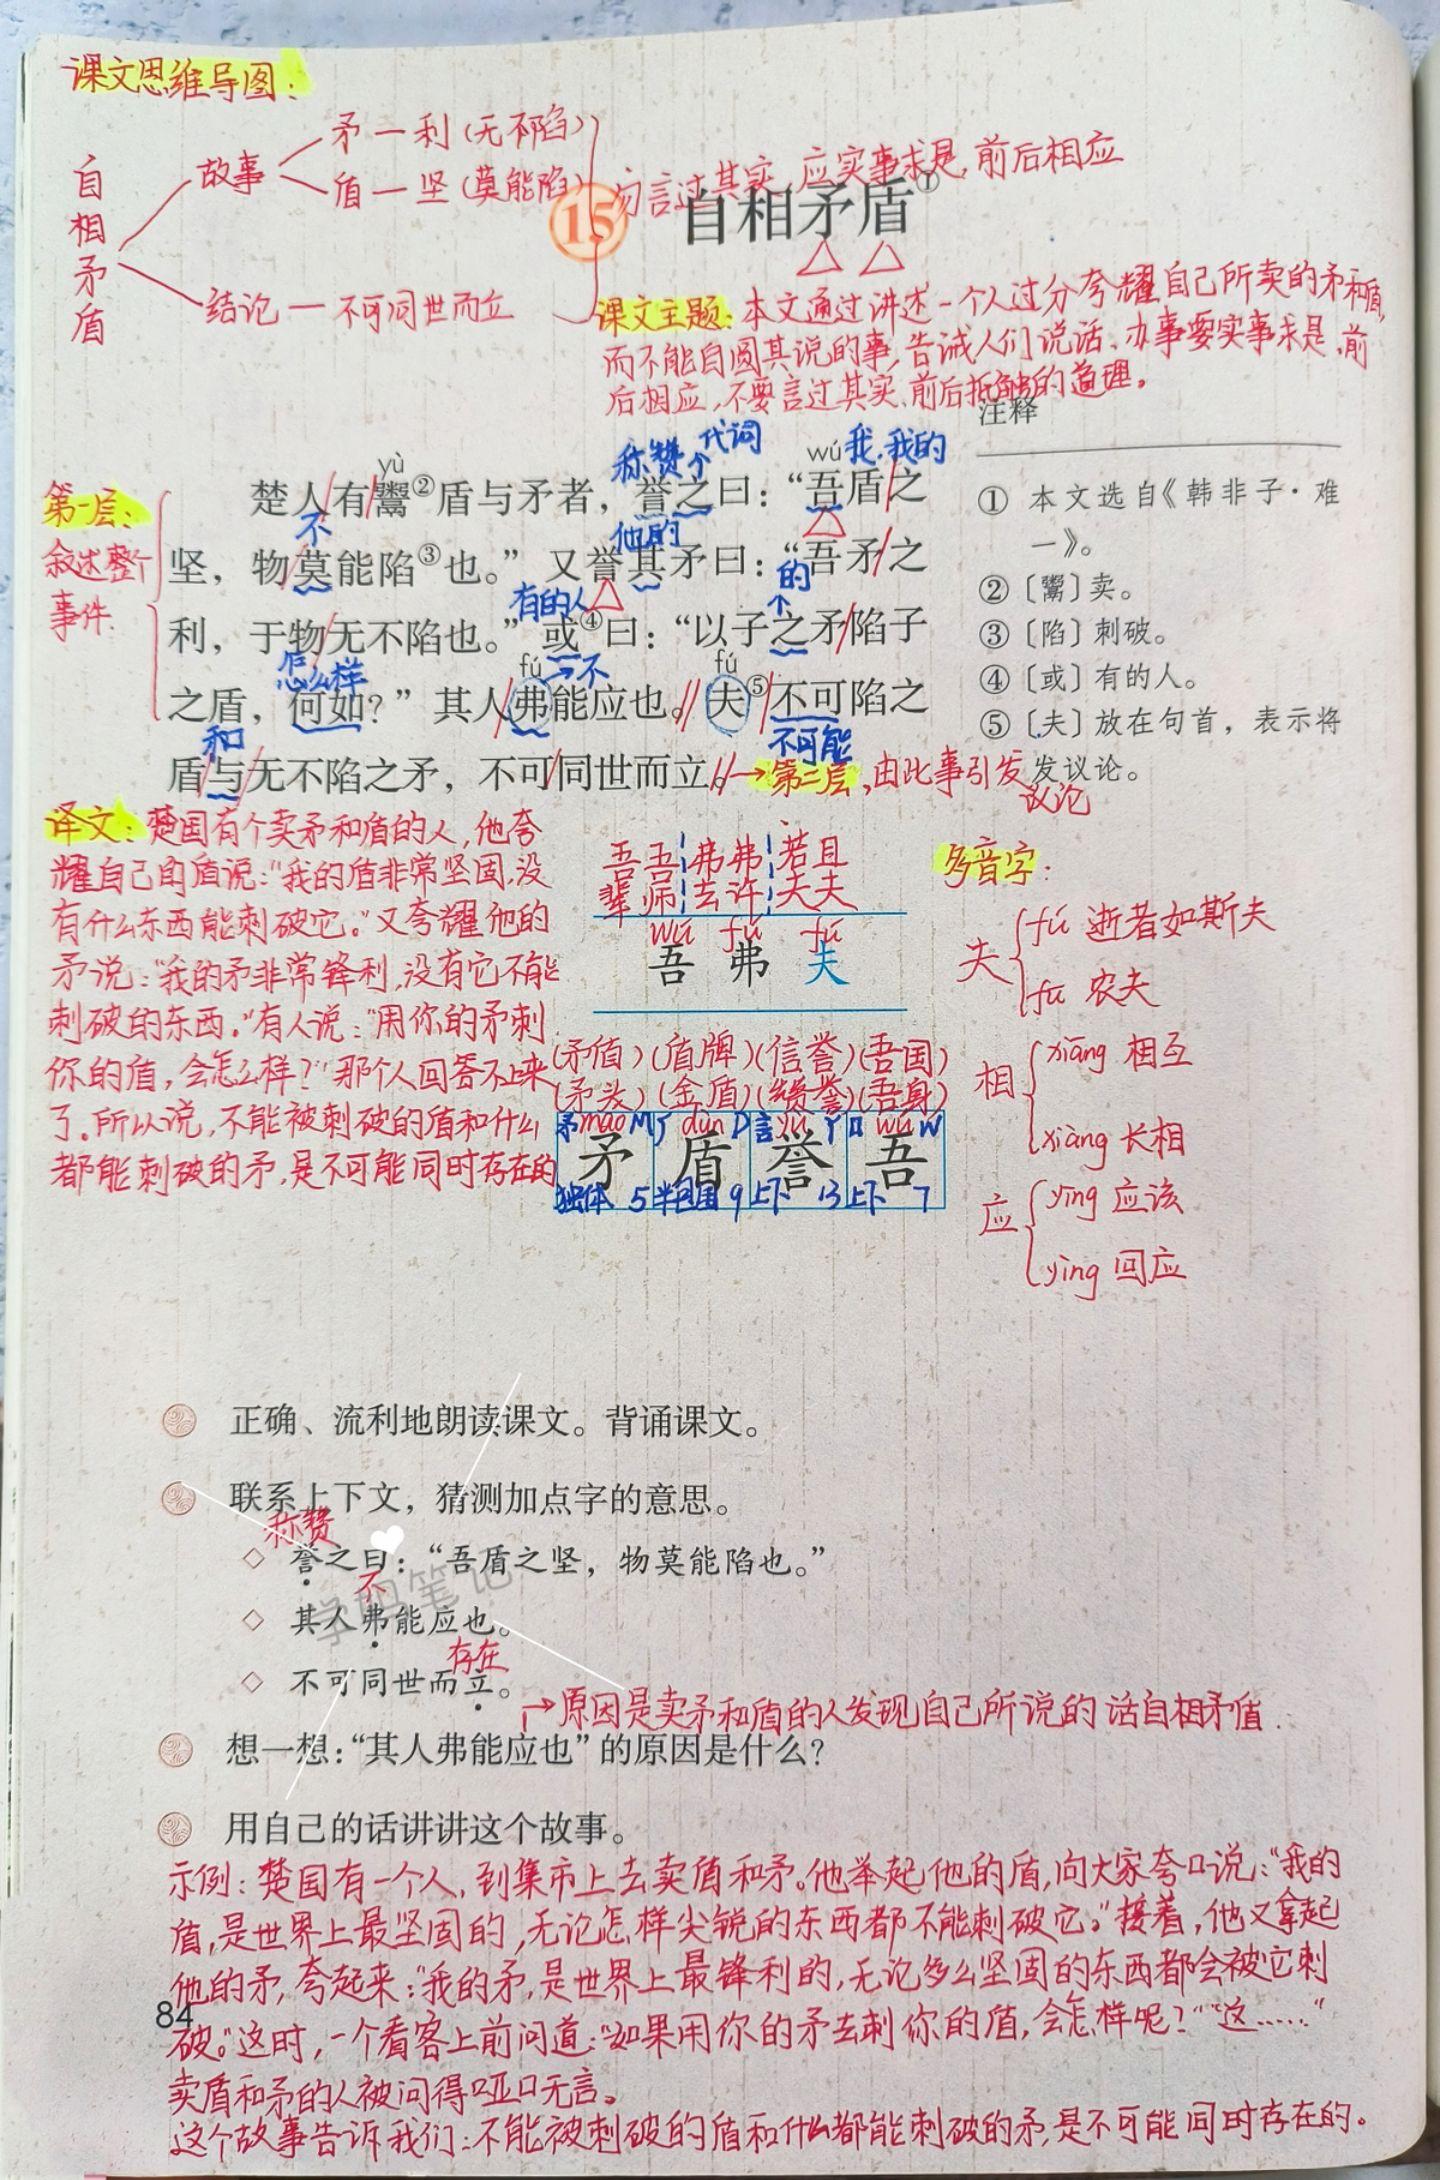 课文思维导图：
自相矛盾
故事
矛一利（无不陷）
盾一坚（莫能陷）
结论一不可同世而立
勿言过其实，应实事求是，前后相应
15 自相矛盾①
课文主题：本文通过讲述一个人过分夸耀自己所卖的矛和盾，
而不能自圆其说的事，告诫人们说话、办事要实事求是，前
后相应，不要言过其实、前后抵触的道理。
注释
① 本文选自《韩非子·难
一》。
②〔鬻〕卖。
③〔陷〕刺破。
④〔或〕有的人。
⑤〔夫〕放在句首，表示将
发议论。
第一层：
叙述整个
事件.
yù 称赞 代词 wú 我.我的
楚人有鬻②盾与矛者，誉之曰：“吾盾之
不 他的
坚，物莫能陷③也。”又誉其矛曰：“吾矛之
有的人 的
利，于物无不陷也。”或④曰：“以子之矛陷子
怎么样 fú →不 fú
之盾，何如？”其人弗能应也。夫⑤不可陷之
和 不可能
盾与无不陷之矛，不可同世而立。
→第二层，由此事引发
议论
译文：楚国有个卖矛和盾的人，他夸
耀自己的盾说：“我的盾非常坚固，没
有什么东西能刺破它。”又夸耀他的
矛说：“我的矛非常锋利，没有它不能
刺破的东西。”有人说：“用你的矛刺
你的盾，会怎么样？”那个人回答不上来
了。所以说，不能被刺破的盾和什么
都能刺破的矛，是不可能同时存在的
吾吾 弗弗 若且
辈师 去许 夫夫
wú fú fú
吾 弗 夫
（矛盾）（盾牌）（信誉）（吾国）
（矛头）（金盾）（赞誉）（吾身）
矛 máo M 厂 dùn D 言 yù Y 口 wú W
矛 盾 誉 吾
独体 5 半包围 9 上下 13 上下 7
多音字：
夫
fú 逝者如斯夫
fū 农夫
相
xiāng 相互
xiàng 长相
应
yīng 应该
yìng 回应
正确、流利地朗读课文。背诵课文。
联系上下文，猜测加点字的意思。
称赞
誉之曰：“吾盾之坚，物莫能陷也。”
不
其人弗能应也。
存在
不可同世而立。
→原因是卖矛和盾的人发现自己所说的话自相矛盾.
想一想：“其人弗能应也”的原因是什么？
用自己的话讲讲这个故事。
示例：楚国有一个人，到集市上去卖盾和矛。他举起他的盾，向大家夸口说：“我的
盾，是世界上最坚固的，无论怎样尖锐的东西都不能刺破它。”接着，他又拿起
他的矛，夸起来：“我的矛，是世界上最锋利的，无论多么坚固的东西都会被它刺
破。”这时，一个看客上前问道：“如果用你的矛去刺你的盾，会怎样呢？”“这……”
卖盾和矛的人被问得哑口无言。
这个故事告诉我们：不能被刺破的盾和什么都能刺破的矛，是不可能同时存在的。
84